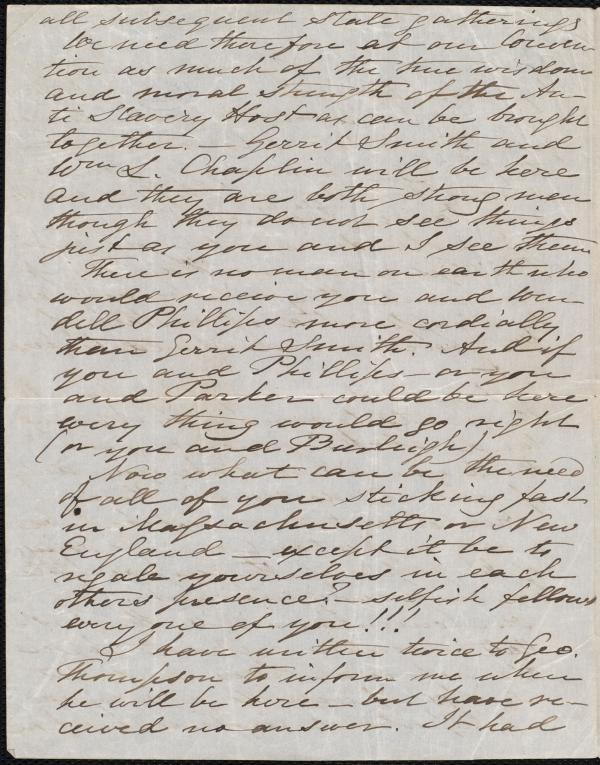 all subsequent state gatherings
We need therefore at our Conven
tion as much of the true wisdom
and moral strength of the An-
ti Slavery Host as can be brought
together. — Gerrit Smith and
Wm L. Chaplin will be here
and they are both strong men
though they do not see things
just as you and I see them
There is no man on earth who
would receive you and Wen-
dell Phillips more cordially
than Gerrit Smith. And if
you and Phillips — or you
and Parker could be here
every thing would go right
(or you and Burleigh)
Now what can be the need
of all of you sticking fast
in Massachusetts or New
England — except it be to
regale yourselves in each
others presence? selfish fellows
every one of you!!!
I have written twice to Geo.
Thompson to inform me when
he will be here — but have re-
ceived no answer. It had